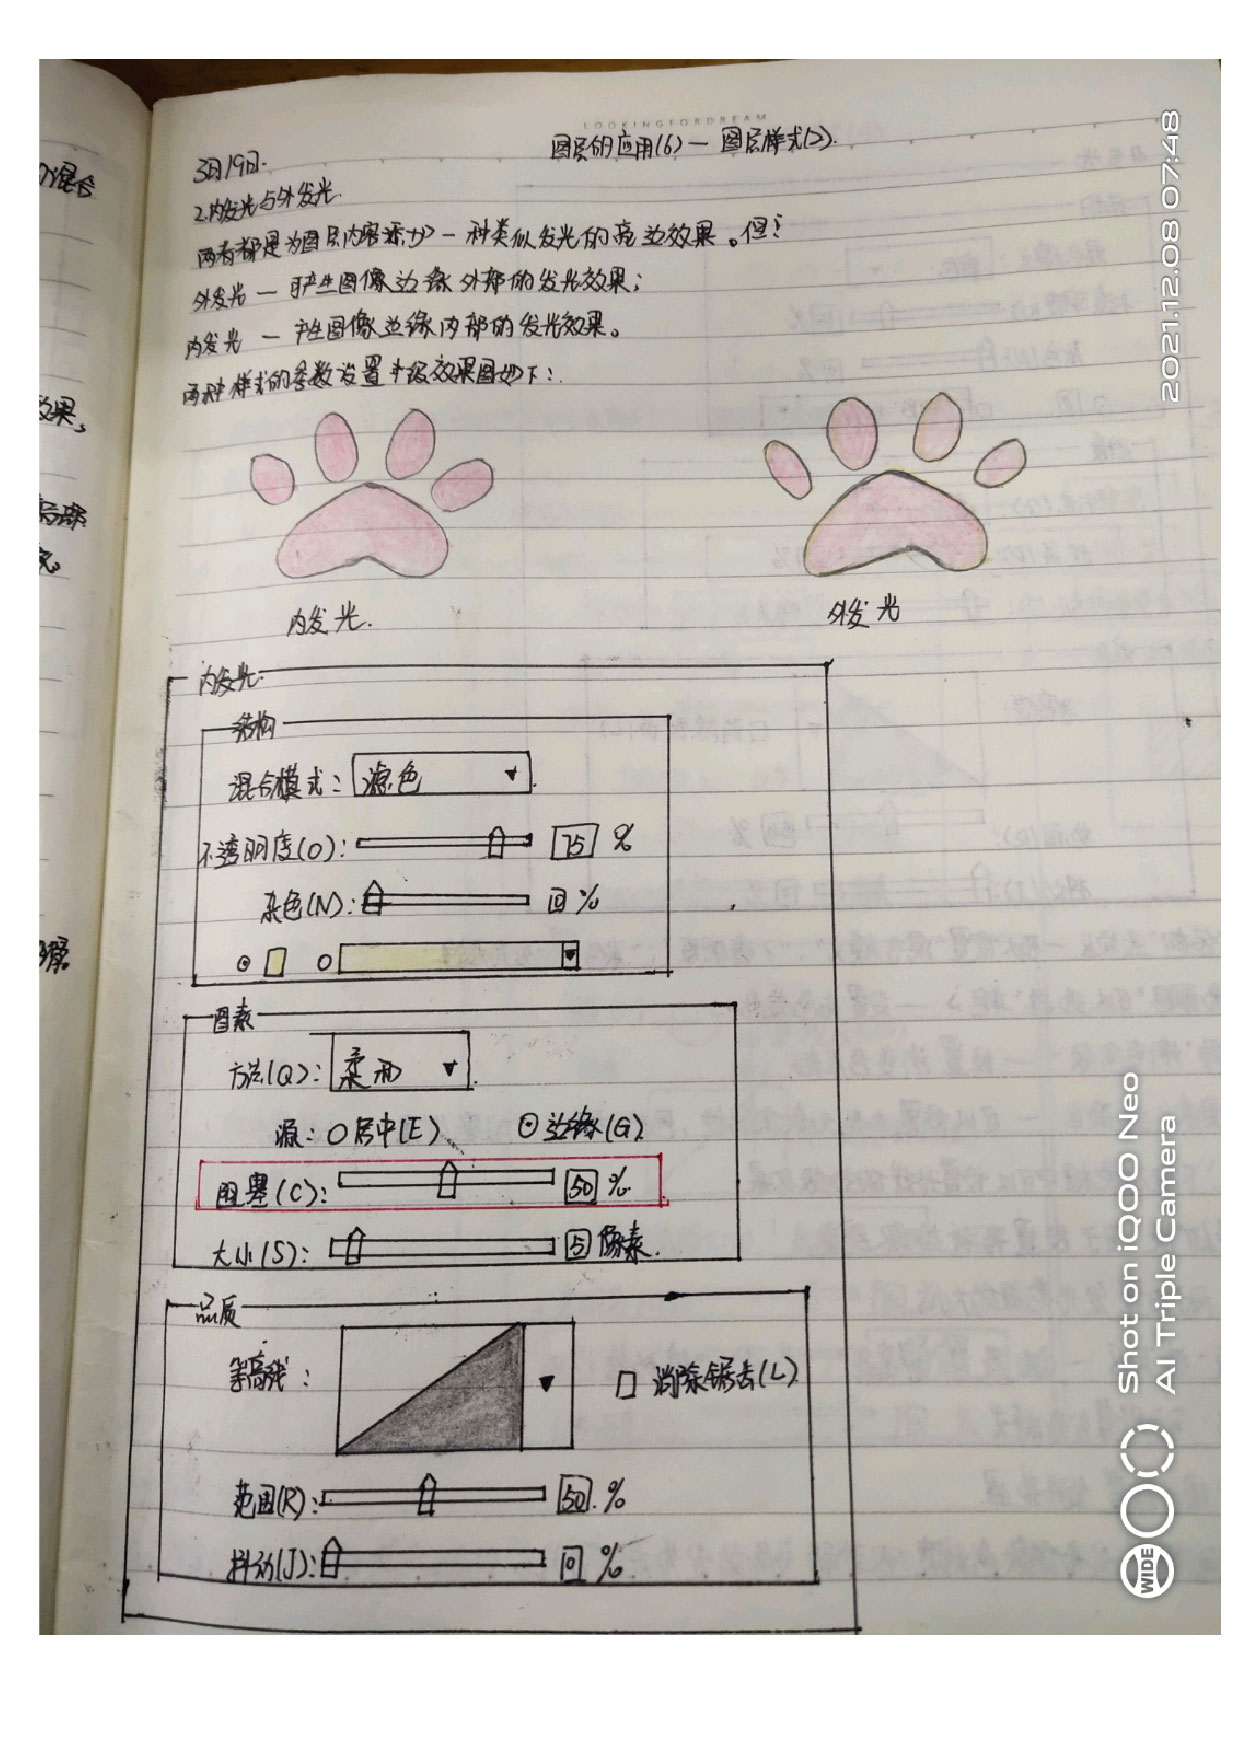 LOOKINGFORDREAM
图层的应用(6) — 图层样式(2).
3月19日.
2.内发光与外发光.
两者都是为图层内容添加一种类似发光的亮边效果。但:
外发光 — 可产生图像边缘外部的发光效果;
内发光 — 产生图像边缘内部的发光效果。
两种样式的参数设置 效果图如下:
内发光.
外发光
内发光
结构
混合模式: 滤色
不透明度(O): 75 %
杂色(N): 0 %
图素
方法(Q): 柔和
源: 居中(E) 边缘(G)
阻塞(C): 50 %
大小(S): 5 像素.
品质
等高线: 消除锯齿(L)
范围(R): 50 %
抖动(J): 0 %
混合
效果,
局部
2021.12.08 07:48
Shot on iQOO Neo
AI Triple Camera
WIDE